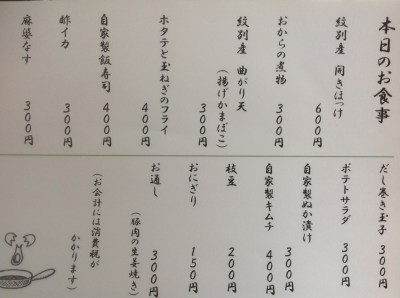 本日のお食事
紋別産 開きほっけ
600円
おからの煮物
300円
紋別産 曲がり天
(揚げかまぼこ)
300円
ホタテと玉ねぎのフライ
400円
自家製飯寿司
400円
酢イカ
300円
麻婆なす
300円
だし巻き玉子
300円
ポテトサラダ
300円
自家製ぬか漬け
300円
自家製キムチ
400円
枝豆
200円
おにぎり
150円
お通し
(豚肉の生姜焼き)
300円
(お会計には消費税が
かかります)